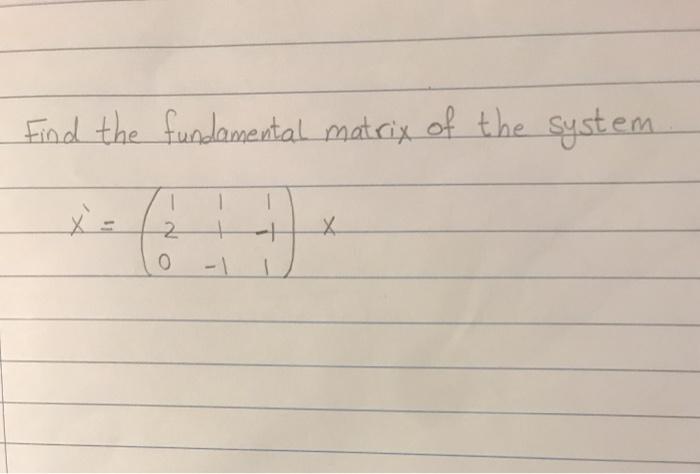 Find the fundamental matrix of the system.
x` = ( 1 1 1
2 1 -1
0 -1 1 ) x